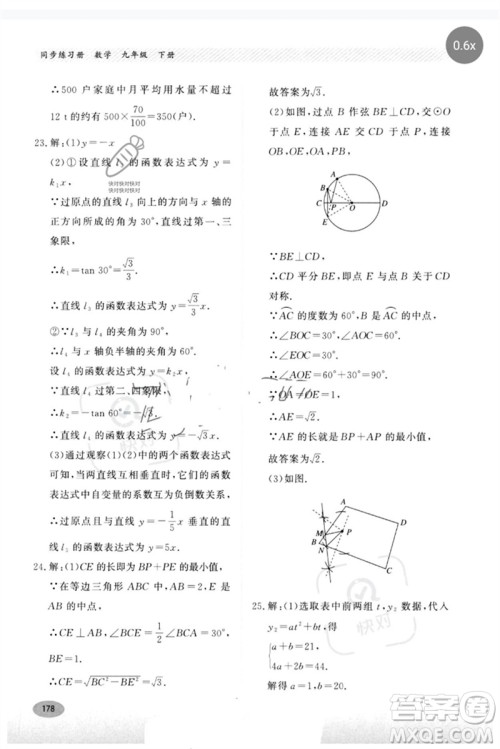 0.6x
同步练习册 数学 九年级 下册
∴500 户家庭中月平均用水量不超过
12 t 的约有 70/100 ×500=350(户).
23. 解:(1)y=-x
(2)①设直线 l 的函数表达式为 y=
k₁x,
∵过原点的直线 l 向上的方向与 x 轴的
正方向所成的角为 30°,直线过第一、三
象限,
∴k₁=tan 30°=√3/3.
∴直线 l₃ 的函数表达式为 y=√3/3 x.
②∵l₃ 与 l₄ 的夹角为 90°,
∴l₄ 与 x 轴负半轴的夹角为 60°.
设 l₄ 的函数表达式为 y=k₂x,
∵直线 l₄ 过第二、四象限,
∴k₂=-tan 60°=-√3.
∴直线 l₄ 的函数表达式为 y=-√3x.
(3)通过观察(1)(2)中的两个函数表达式
可知,当两直线互相垂直时,它们的函数
表达式中自变量的系数互为负倒数关系,
∴过原点且与直线 y=-1/5 x 垂直的直
线 l₅ 的函数表达式为 y=5x.
24. 解:(1)CE 的长即为 BP+PE 的最小值.
∵在等边三角形 ABC 中,E 是 AB 的
中点,
∴CE⊥AB,BE=1/2 AB=1.
∴CE=√BC²-BE²=√2²-1²=√3.
178
故答案为√3.
(2)如图,过点 B 作弦 BE⊥CD,交 CD
于点 E,连接 AE 交 CD 于点 P,连接
OB,OE,OA,PB.
A
B
C
P
O
D
E
∵BE⊥CD,
∴CD 平分 BE,即点 E 与点 B 关于 CD
对称.
∵AC 的度数为 60°,B 是 AC 的中点,
∴∠BOC=30°,∠AOC=60°.
∴∠EOC=30°.
∴∠AOE=60°+30°=90°.
∵OA=OE=1,
∴AE=√2.
∵AE 的长就是 BP+AP 的最小值,
故答案为√2.
(3)如图.
A
D
M
P
B
N
C
25. 解:(1)选取表中前两组 t,数据,代入
y₂=at²+bt,得
{a+b=21,
4a+2b=44.
解得 a=1,b=20.
快对
快对快对快对
快对快对快对